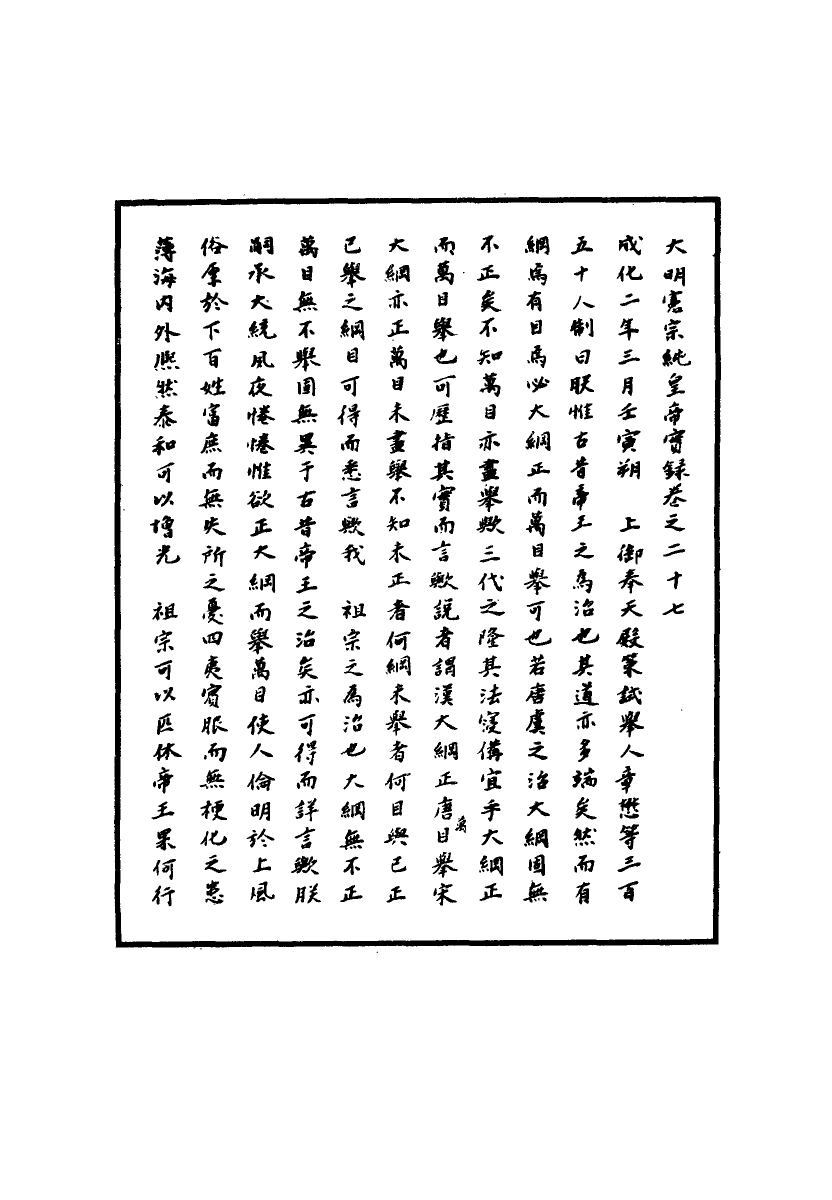 大明憲宗純皇帝實錄卷之二十七
成化二年三月壬寅朔　上御奉天殿策試舉人章懋等三百
五十人制曰朕惟古昔帝王之為治也其道亦多端矣然而有
綱焉有目焉必大綱正而萬目舉可也若唐虞之治大綱固無
不正矣不知萬目亦盡舉歟三代之隆其法寖備宜乎大綱正
而萬目舉也可歷指其實而言歟說者謂漢大綱正唐萬目舉宋
大綱亦正萬目未盡舉不知未正者何綱未舉者何目與已正
已舉之綱目可得而悉言歟我　祖宗之為治也大綱無不正
萬目無不舉固無異于古昔帝王之治矣亦可得而詳言歟朕
嗣承大統夙夜惓惓惟欲正大綱而舉萬目使人倫明於上風
俗厚於下百姓富庶而無失所之憂四夷賓服而無梗化之患
薄海內外熙然泰和可以增光　祖宗可以匹休帝王果何行